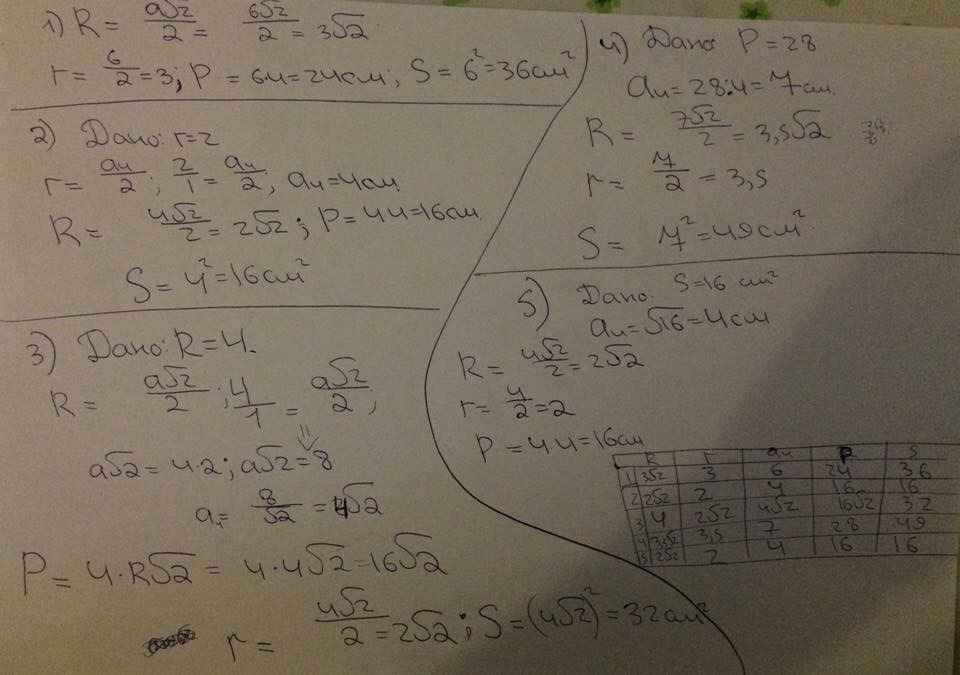 1) R = a√2/2 = 6√2/2 = 3√2
r = 6/2 = 3; P = 64 = 24 см; S = 6² = 36 см²
2) Дано: r = 2
r = a4/2; 2/1 = a4/2, a4 = 4 см
R = 4√2/2 = 2√2; P = 44 = 16 см
S = 4² = 16 см²
3) Дано: R = 4.
R = a√2/2; 4/1 = a√2/2;
⇓
a√2 = 4·2; a√2 = 8
a4 = 8/√2 = 4√2
P = 4·R√2 = 4·4√2 = 16√2
r = 4√2/2 = 2√2; S = (4√2)² = 32 см²
4) Дано: P = 28
a4 = 28:4 = 7 см
R = 7√2/2 = 3,5√2
r = 7/2 = 3,5
S = 7² = 49 см²
5) Дано: S = 16 см²
a4 = √16 = 4 см
R = 4√2/2 = 2√2
r = 4/2 = 2
P = 44 = 16 см
R r a4 P S
1 3√2 3 6 24 36
2 2√2 2 4 16 16
3 4 2√2 4√2 16√2 32
4 3,5√2 3,5 7 28 49
5 2√2 2 4 16 16